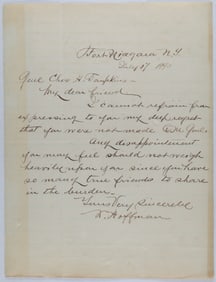 Fort Niagara N.Y.
July 17
Genl Chas H. Tompkins
My dear friend
I cannot refrain from
expressing to you my deep regret
that you were not made Q.M. Genl.
Any disappointment
you may feel should not weigh
heavily upon you since you have
so many true friends to share
in the burden.
Yours Very Sincerely
Hoffman